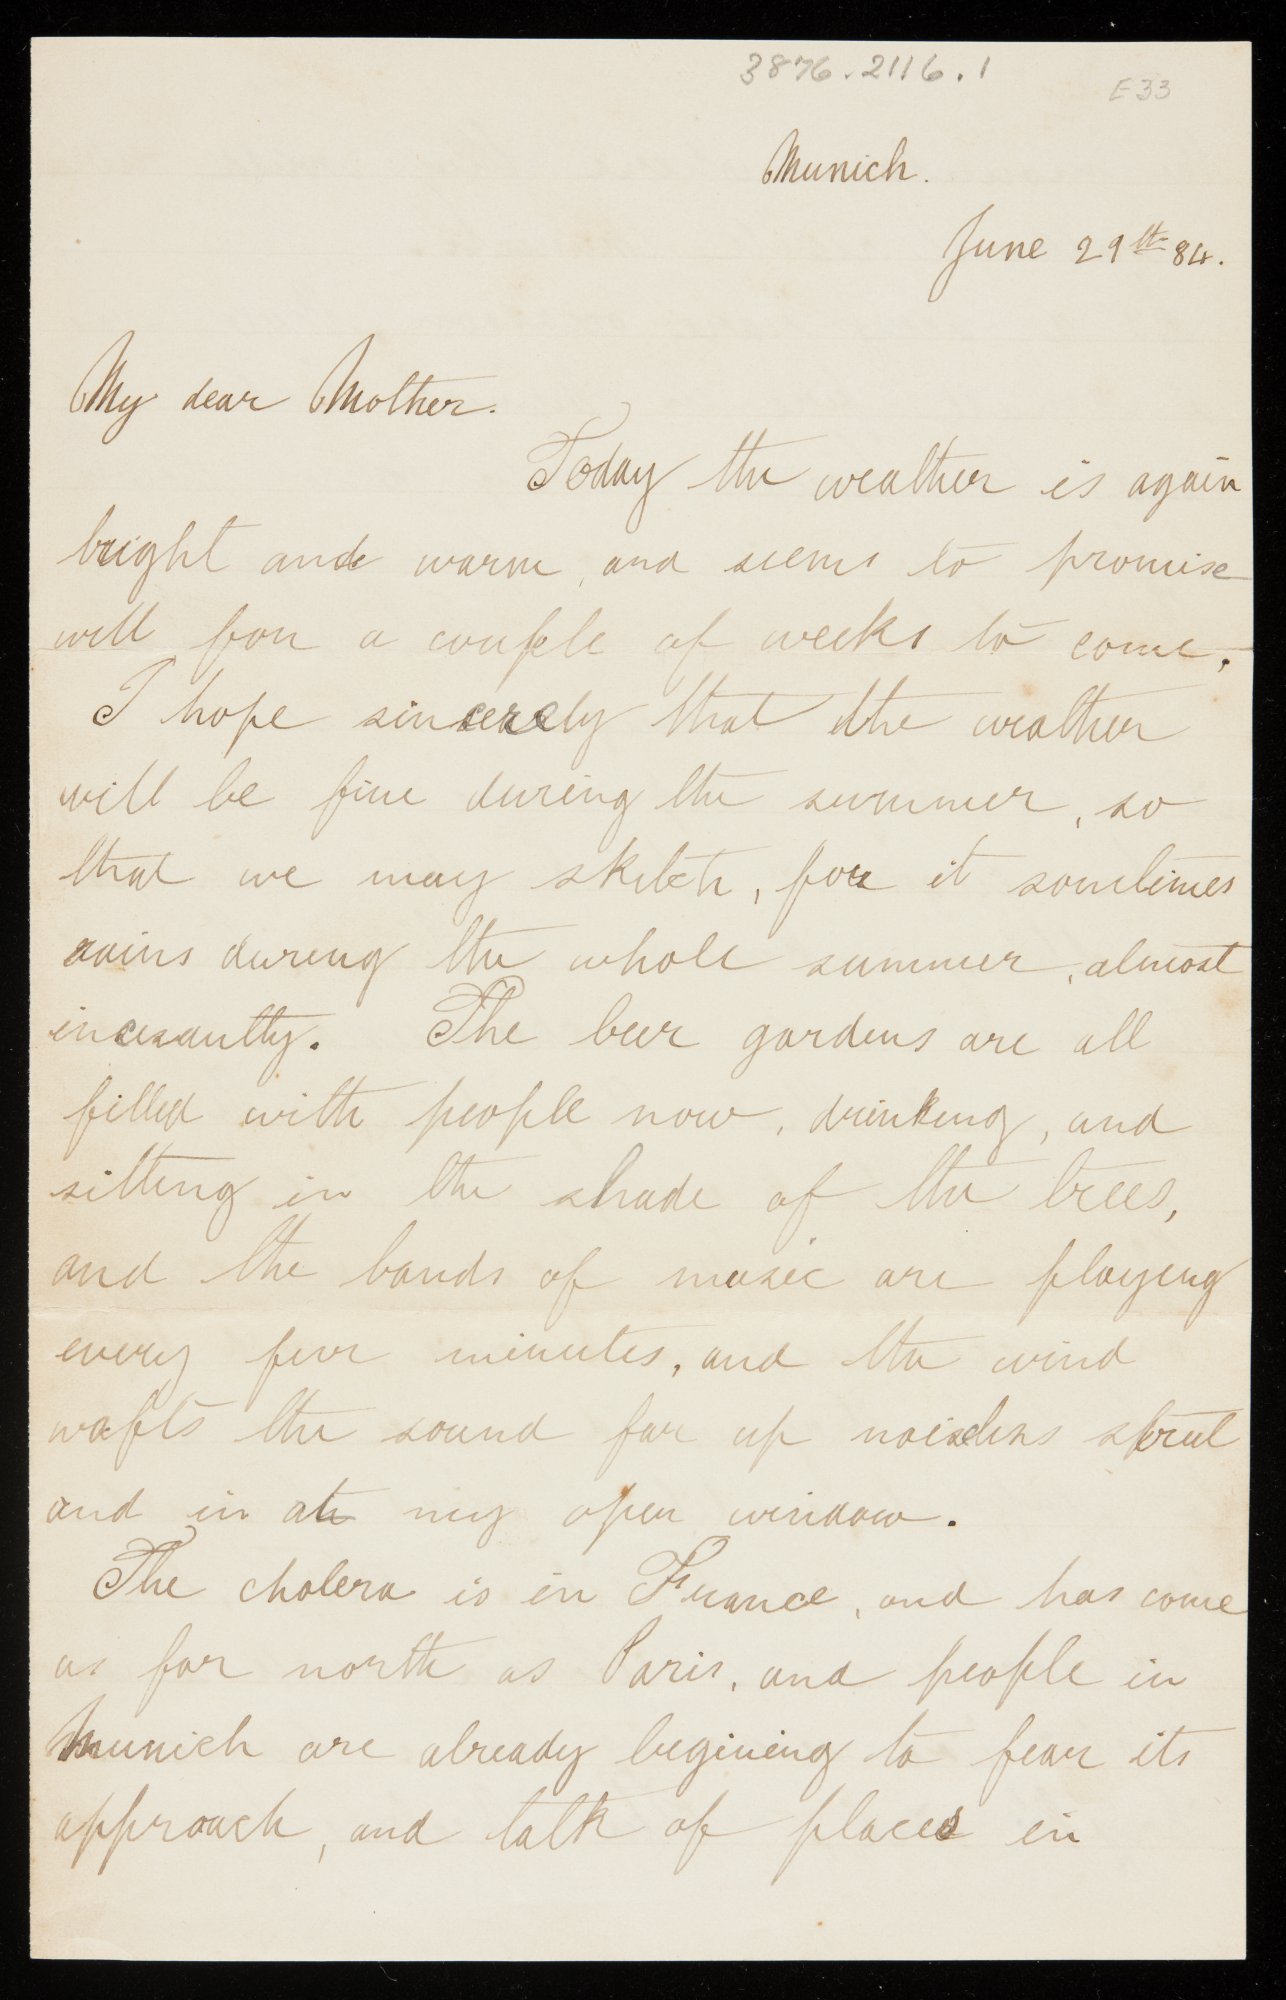 3876.2116.1
E33
Munich.
June 29th 84.
My dear Mother.
Today the weather is again
bright and warm, and seems to promise
well for a couple of weeks to come.
I hope sincerely that the weather
will be fine during the summer, so
that we may sketch, for it sometimes
rains during the whole summer, almost
incesantly. The beer gardens are all
filled with people now, drinking, and
sitting in the shade of the trees,
and the bands of music are playing
every few minutes, and the wind
wafts the sound far up noiseless street
and in at my open window.
The cholera is in France, and has come
as far north as Paris, and people in
Munich are already begining to fear its
approach, and talk of places in